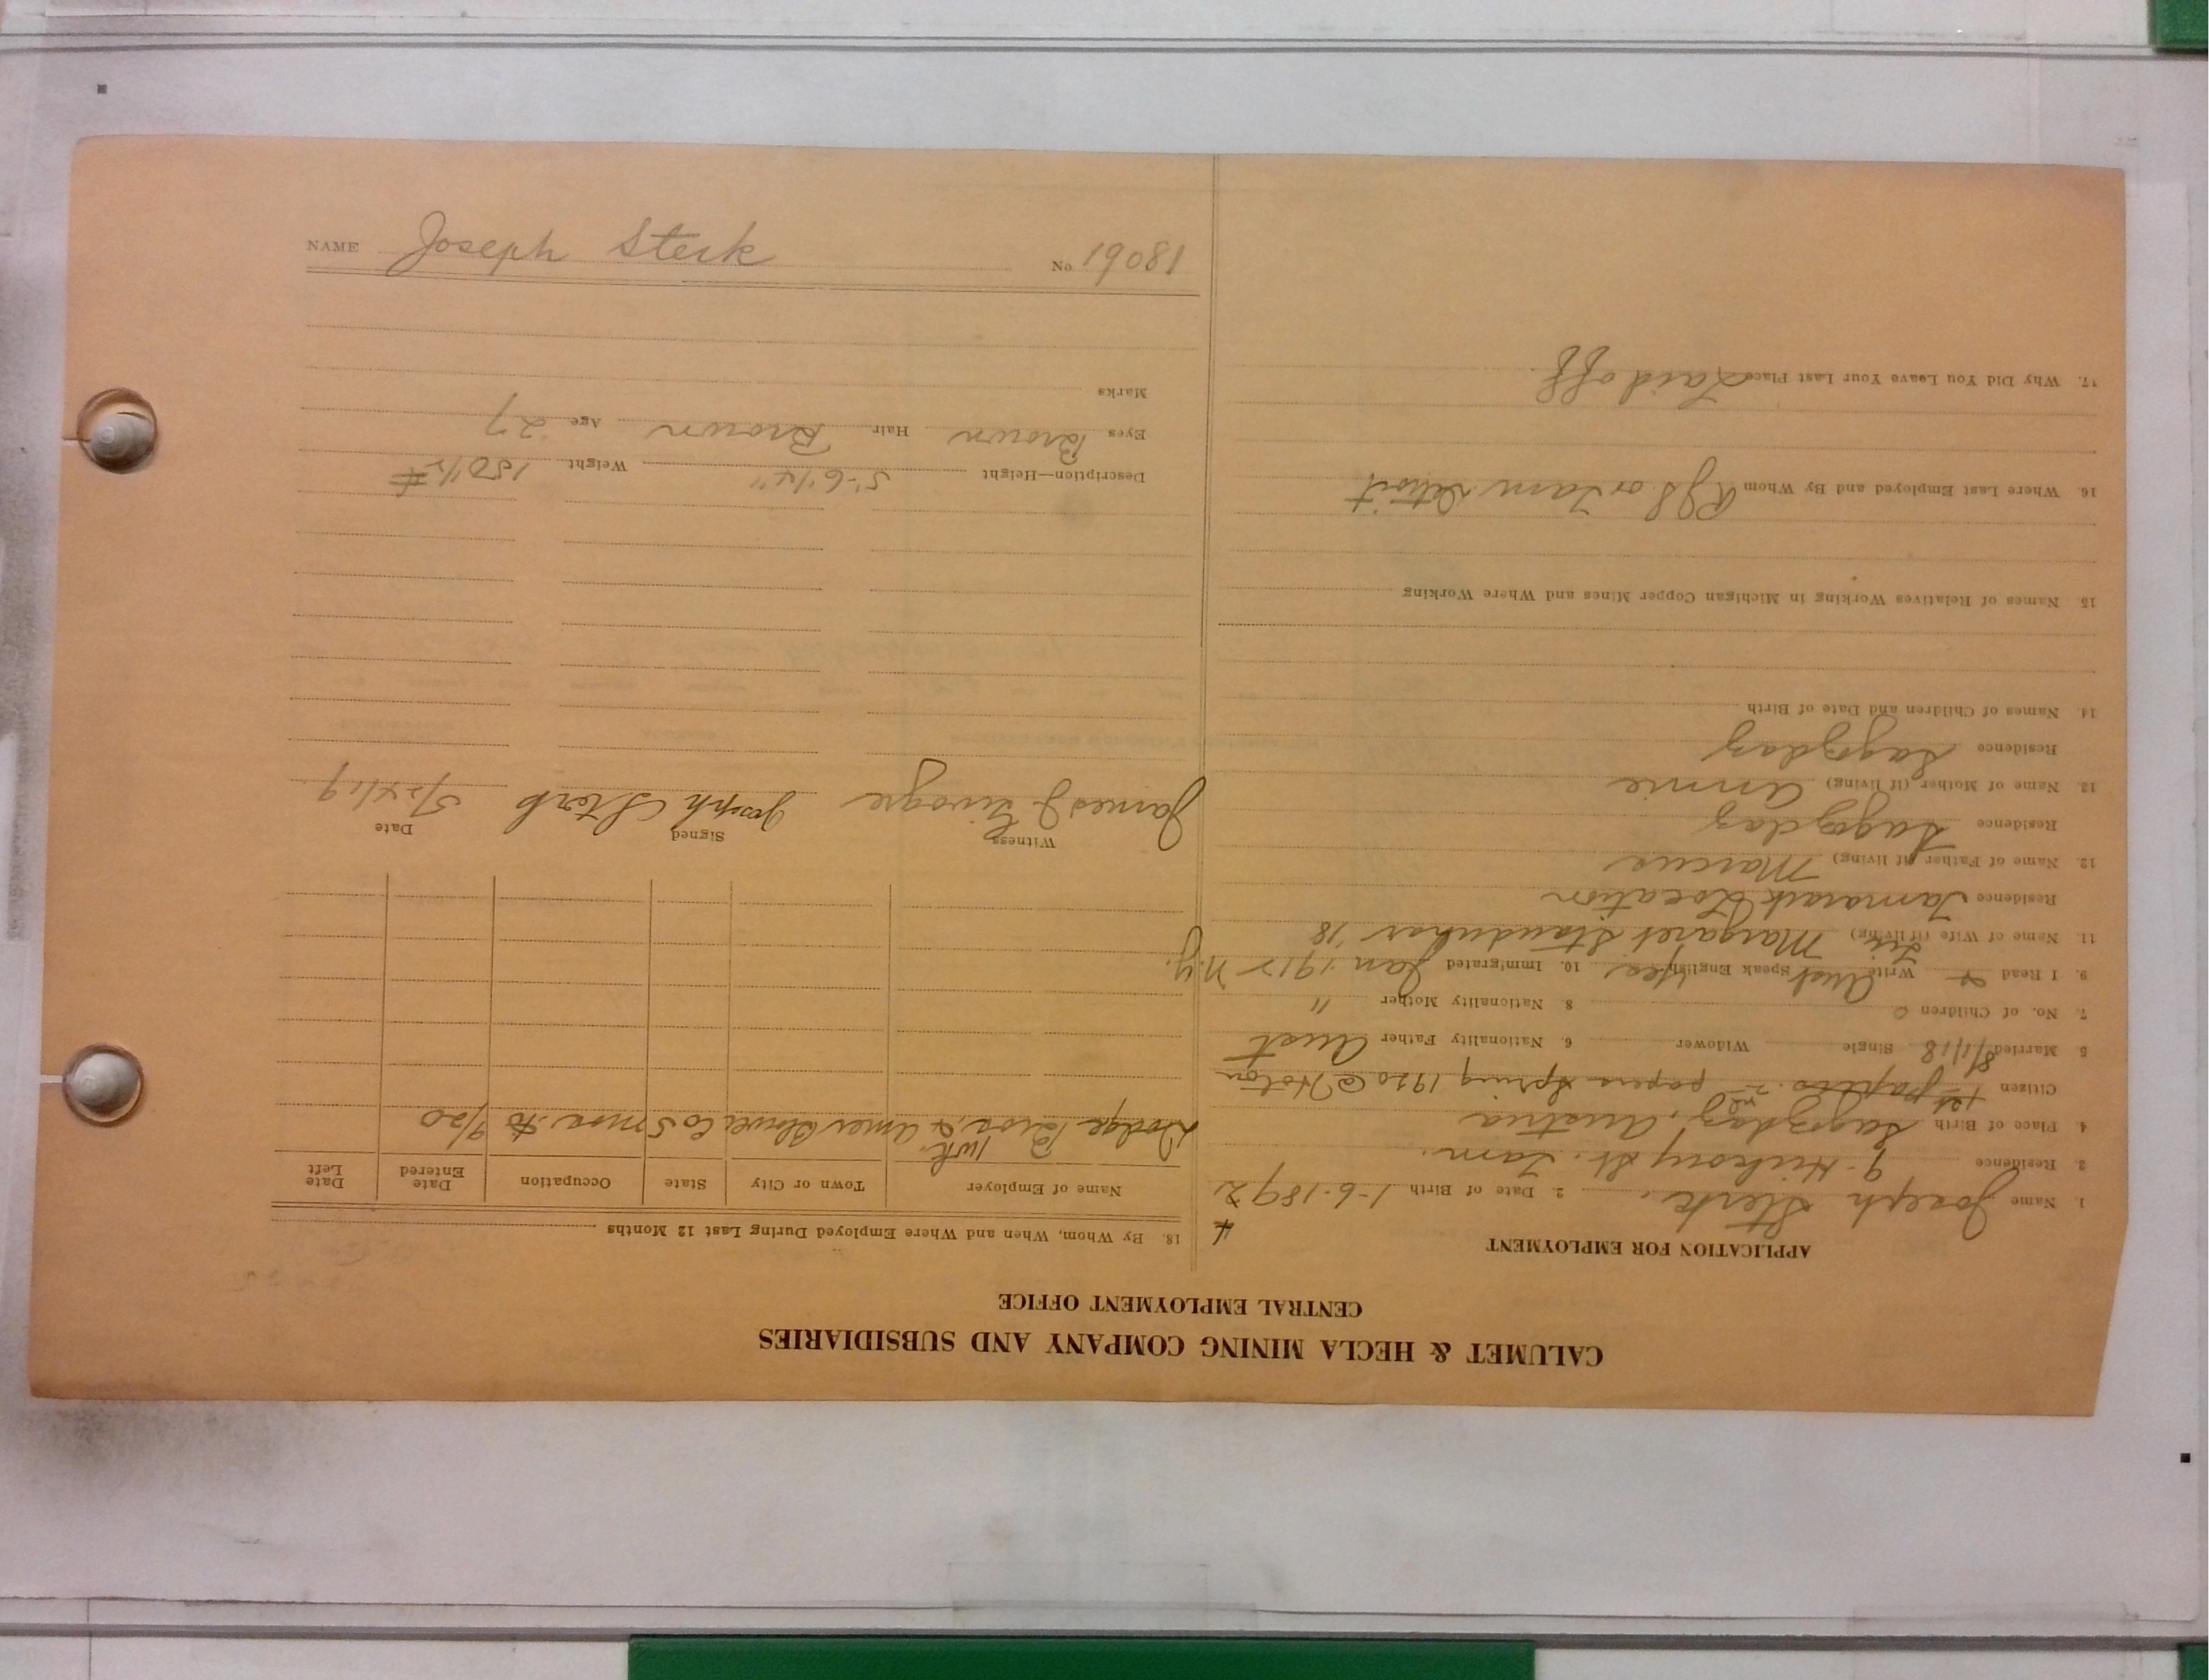 NAME Joseph Sterk No. 19081
CALUMET & HECLA MINING COMPANY AND SUBSIDIARIES
CENTRAL EMPLOYMENT OFFICE
APPLICATION FOR EMPLOYMENT
1. Name Joseph Sterk. 2. Date of Birth 1-6-1892
4
3. Residence 9-Hickory St. Tam.
4. Place of Birth Austria
Citizen 1st papers. 2nd papers Spring 1920 @ Hoton
5. Married 8/1/18 Single Widower 6. Nationality Father Aust
7. No. of Children 0 8. Nationality Mother "
9. I Read & Write Aust Speak English Yes 10. Immigrated Jan. 1912 N.Y.
11. Name of Wife (if living) Margaret '18
Residence Tamarack Location
12. Name of Father (if living) Marcus
Residence
13. Name of Mother (if living) Annie
Residence
14. Names of Children and Date of Birth
15. Names of Relatives Working in Michigan Copper Mines and Where Working
16. Where Last Employed and By Whom or Tam Detroit
17. Why Did You Leave Your Last Place Laid off
18. By Whom, When and Where Employed During Last 12 Months
Name of Employer Town or City State Occupation Date Entered Date Left
1 wk.
Dodge Bros. & Amer 5 mos. to 9/20
Witness Signed Date
James Joseph Sterk 5/24/19
Description—Height 5'-6 1/4" Weight 150 1/2 #
Eyes Brown Hair Brown Age 27
Marks